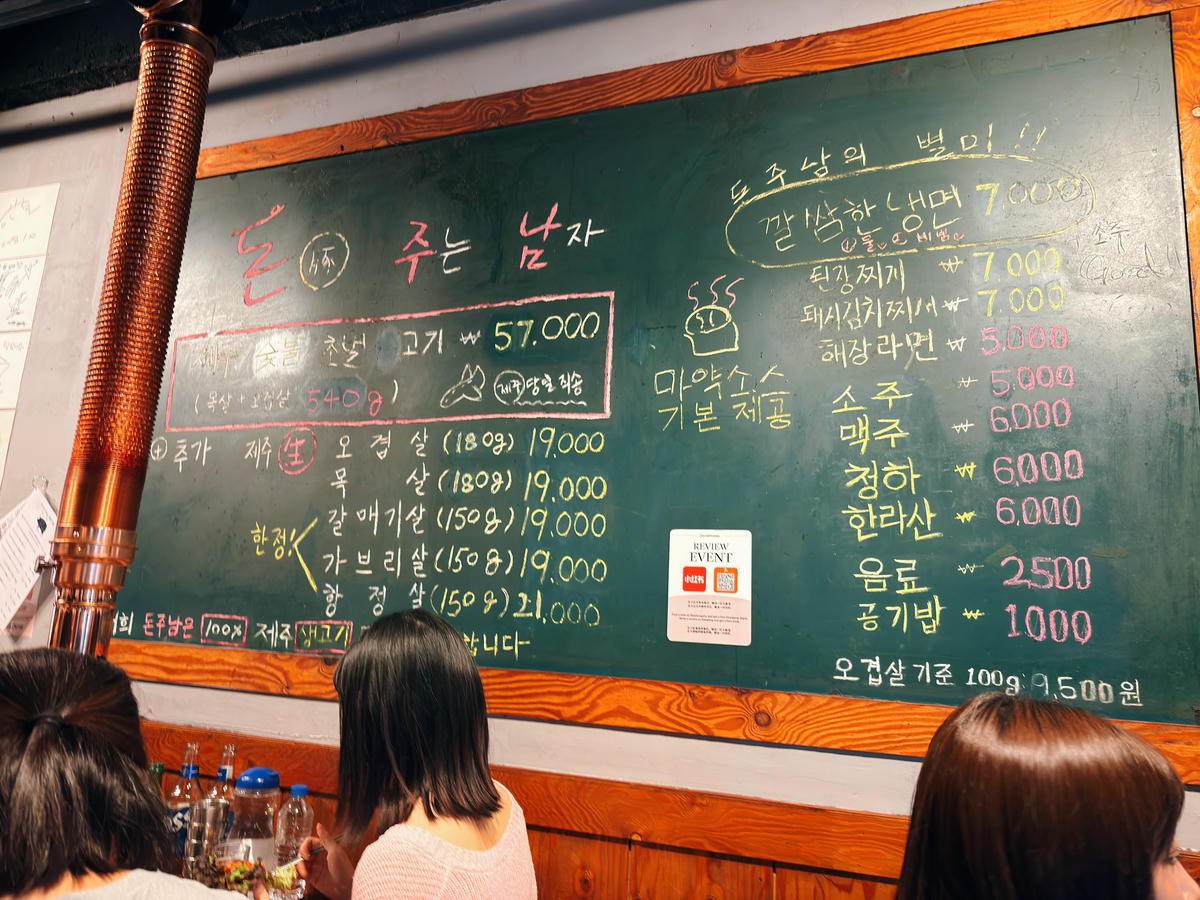 돈 豚 주는 남자
제주 숯불 초벌 고기 ₩ 57.000
(목살 + 오겹살 540g)
제주 당일 직송
+ 추가 제주 生 오겹살 (180g) 19,000
목살 (180g) 19,000
한정! 갈매기살 (150g) 19,000
가브리살 (150g) 19,000
항정살 (150g) 21,000
저희 돈주남은 100% 제주 생고기
합니다
마약소스
기본 제공
REVIEW
EVENT
小红书
돈주남의 별미!!
깔쌈한 냉면 7,000
물 or 비빔
된장찌개 ₩ 7000
돼지김치찌개 ₩ 7.000
해장라면 ₩ 5.000
소주 ₩ 5.000
맥주 ₩ 6,000
청하 ₩ 6,000
한라산 ₩ 6,000
음료 ₩ 2,500
공기밥 ₩ 1000
오겹살 기준 100g 9,500원
소주
Good!!